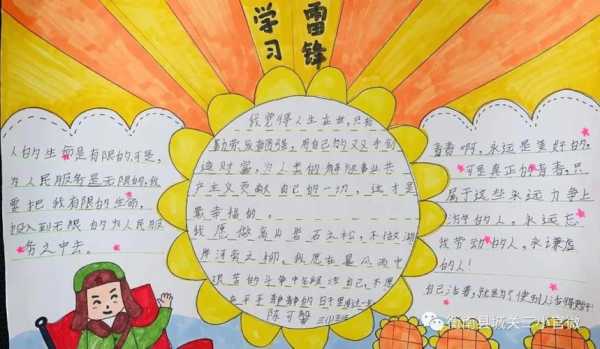 学习
雷锋
人的生命是有限的,可是,
为人民服务是无限的,我
要把我有限的生命,
投入到无限的为人民服
务之中去。
我觉得人生在世,只有
勤劳,发愤图强,用自己的双手创
造财富,为人类的解放事业共
产主义贡献自己的一切,这才是
最幸福的。
我愿做高山岩石之松,不做湖
岸河旁之柳。我愿在暴风雨中
艰苦的斗争中锻炼自己,不愿
在平平静静的日子里
陈可馨
青春啊,永远是美好的,
可是真正的青春,只
属于这些永远力争上
游的人,永远忘
我劳动的人,永谦虚
的人!
自己活着,就是为了使别人
衡南县城关三小官微